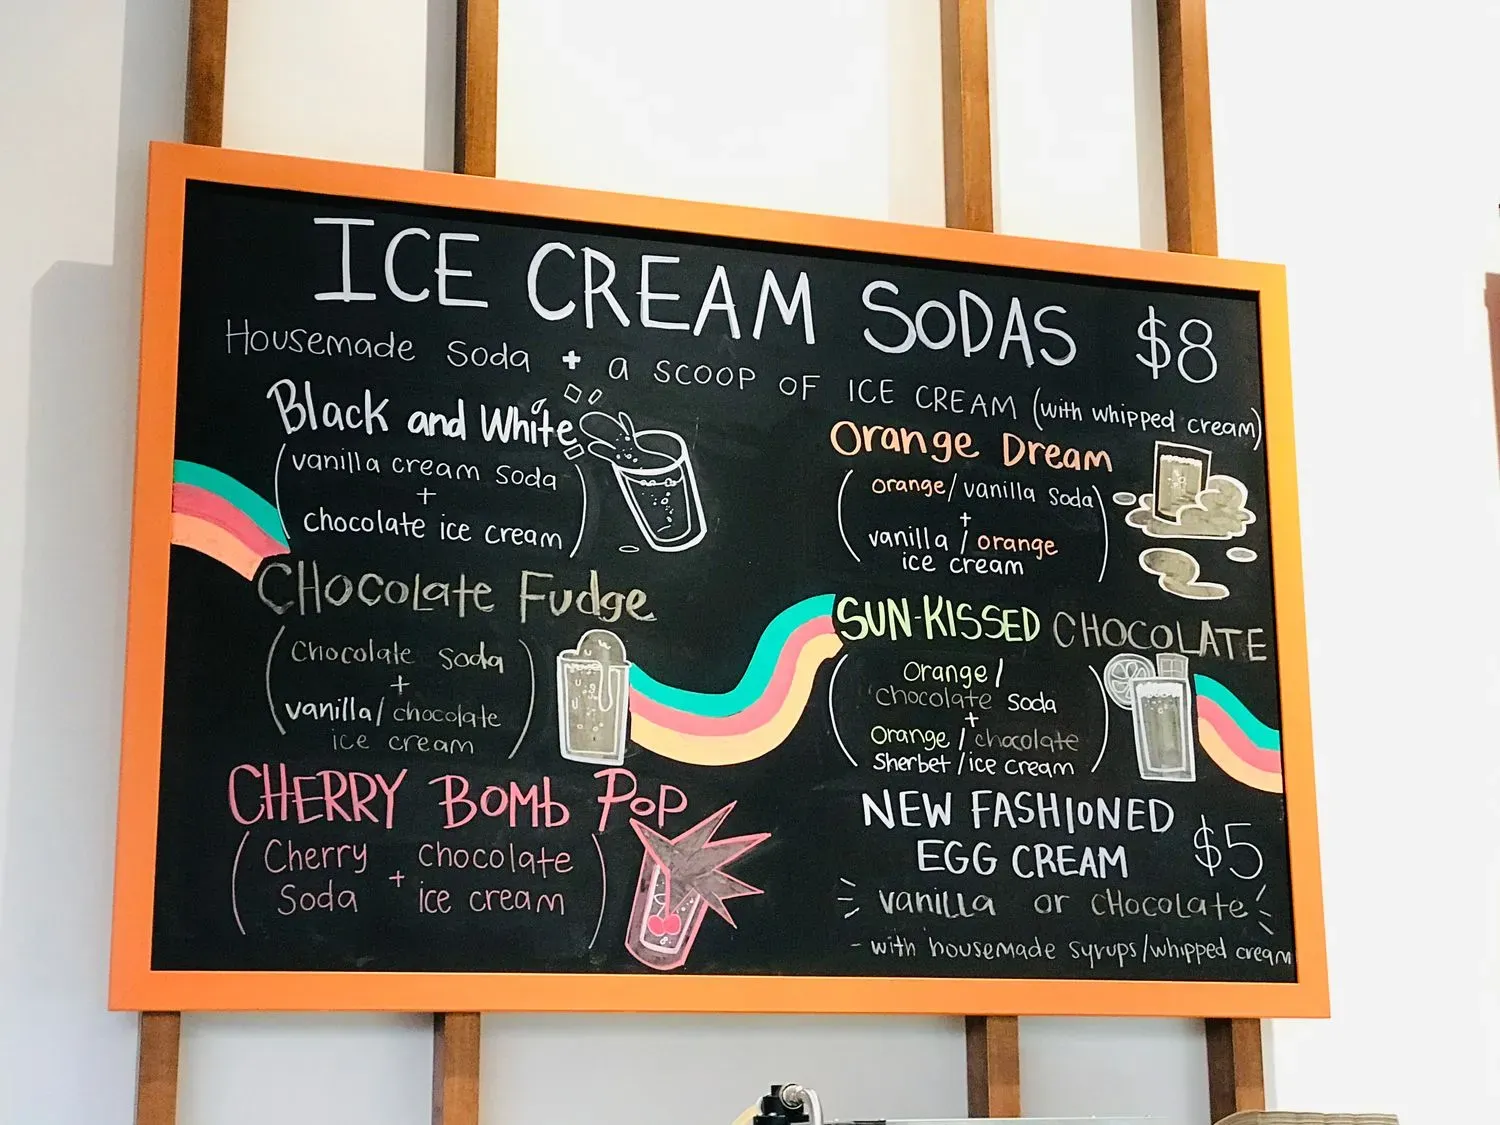 ICE CREAM SODAS $8
Housemade Soda + a SCOOP OF ICE CREAM (with whipped cream)
Black and White
(vanilla cream soda
+
chocolate ice cream)
CHocoLate Fudge
(Chocolate Soda
+
vanilla/chocolate
ice cream)
CHERRY BOMb POP
(Cherry Soda + chocolate ice cream)
Orange Dream
(orange/vanilla Soda)
+
vanilla/orange
ice cream
SUN-KISSED CHOCOLATE
(Orange/
chocolate soda
+
Orange/chocolate
Sherbet/ice cream)
NEW FASHIONED
EGG CREAM $5
vaniLLa or cHocoLate
- with housemade syrups/whipped cream